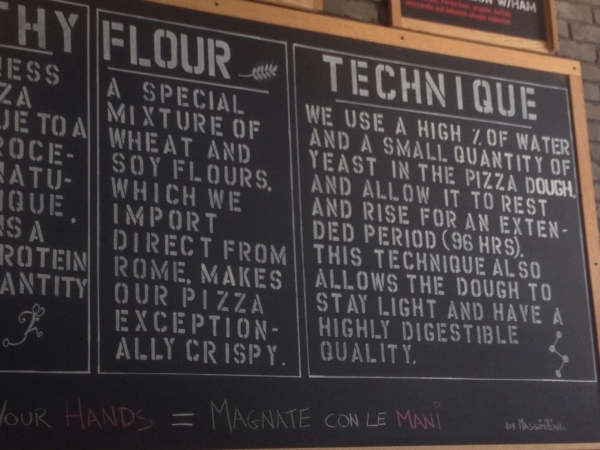 N W/HAM
HY
ESS
ZA
UE TO A
ROCE-
ATU-
IQUE.
S A
ROTEIN
ANTITY
FLOUR
A SPECIAL
MIXTURE OF
WHEAT AND
SOY FLOURS.
WHICH WE
IMPORT
DIRECT FROM
ROME, MAKES
OUR PIZZA
EXCEPTION-
ALLY CRISPY.
TECHNIQUE
WE USE A HIGH % OF WATER
AND A SMALL QUANTITY OF
YEAST IN THE PIZZA DOUGH,
AND ALLOW IT TO REST
AND RISE FOR AN EXTEN-
DED PERIOD (96 HRS).
THIS TECHNIQUE ALSO
ALLOWS THE DOUGH TO
STAY LIGHT AND HAVE A
HIGHLY DIGESTIBLE
QUALITY.
YOUR HANDS = MAGNATE CON LE MANI